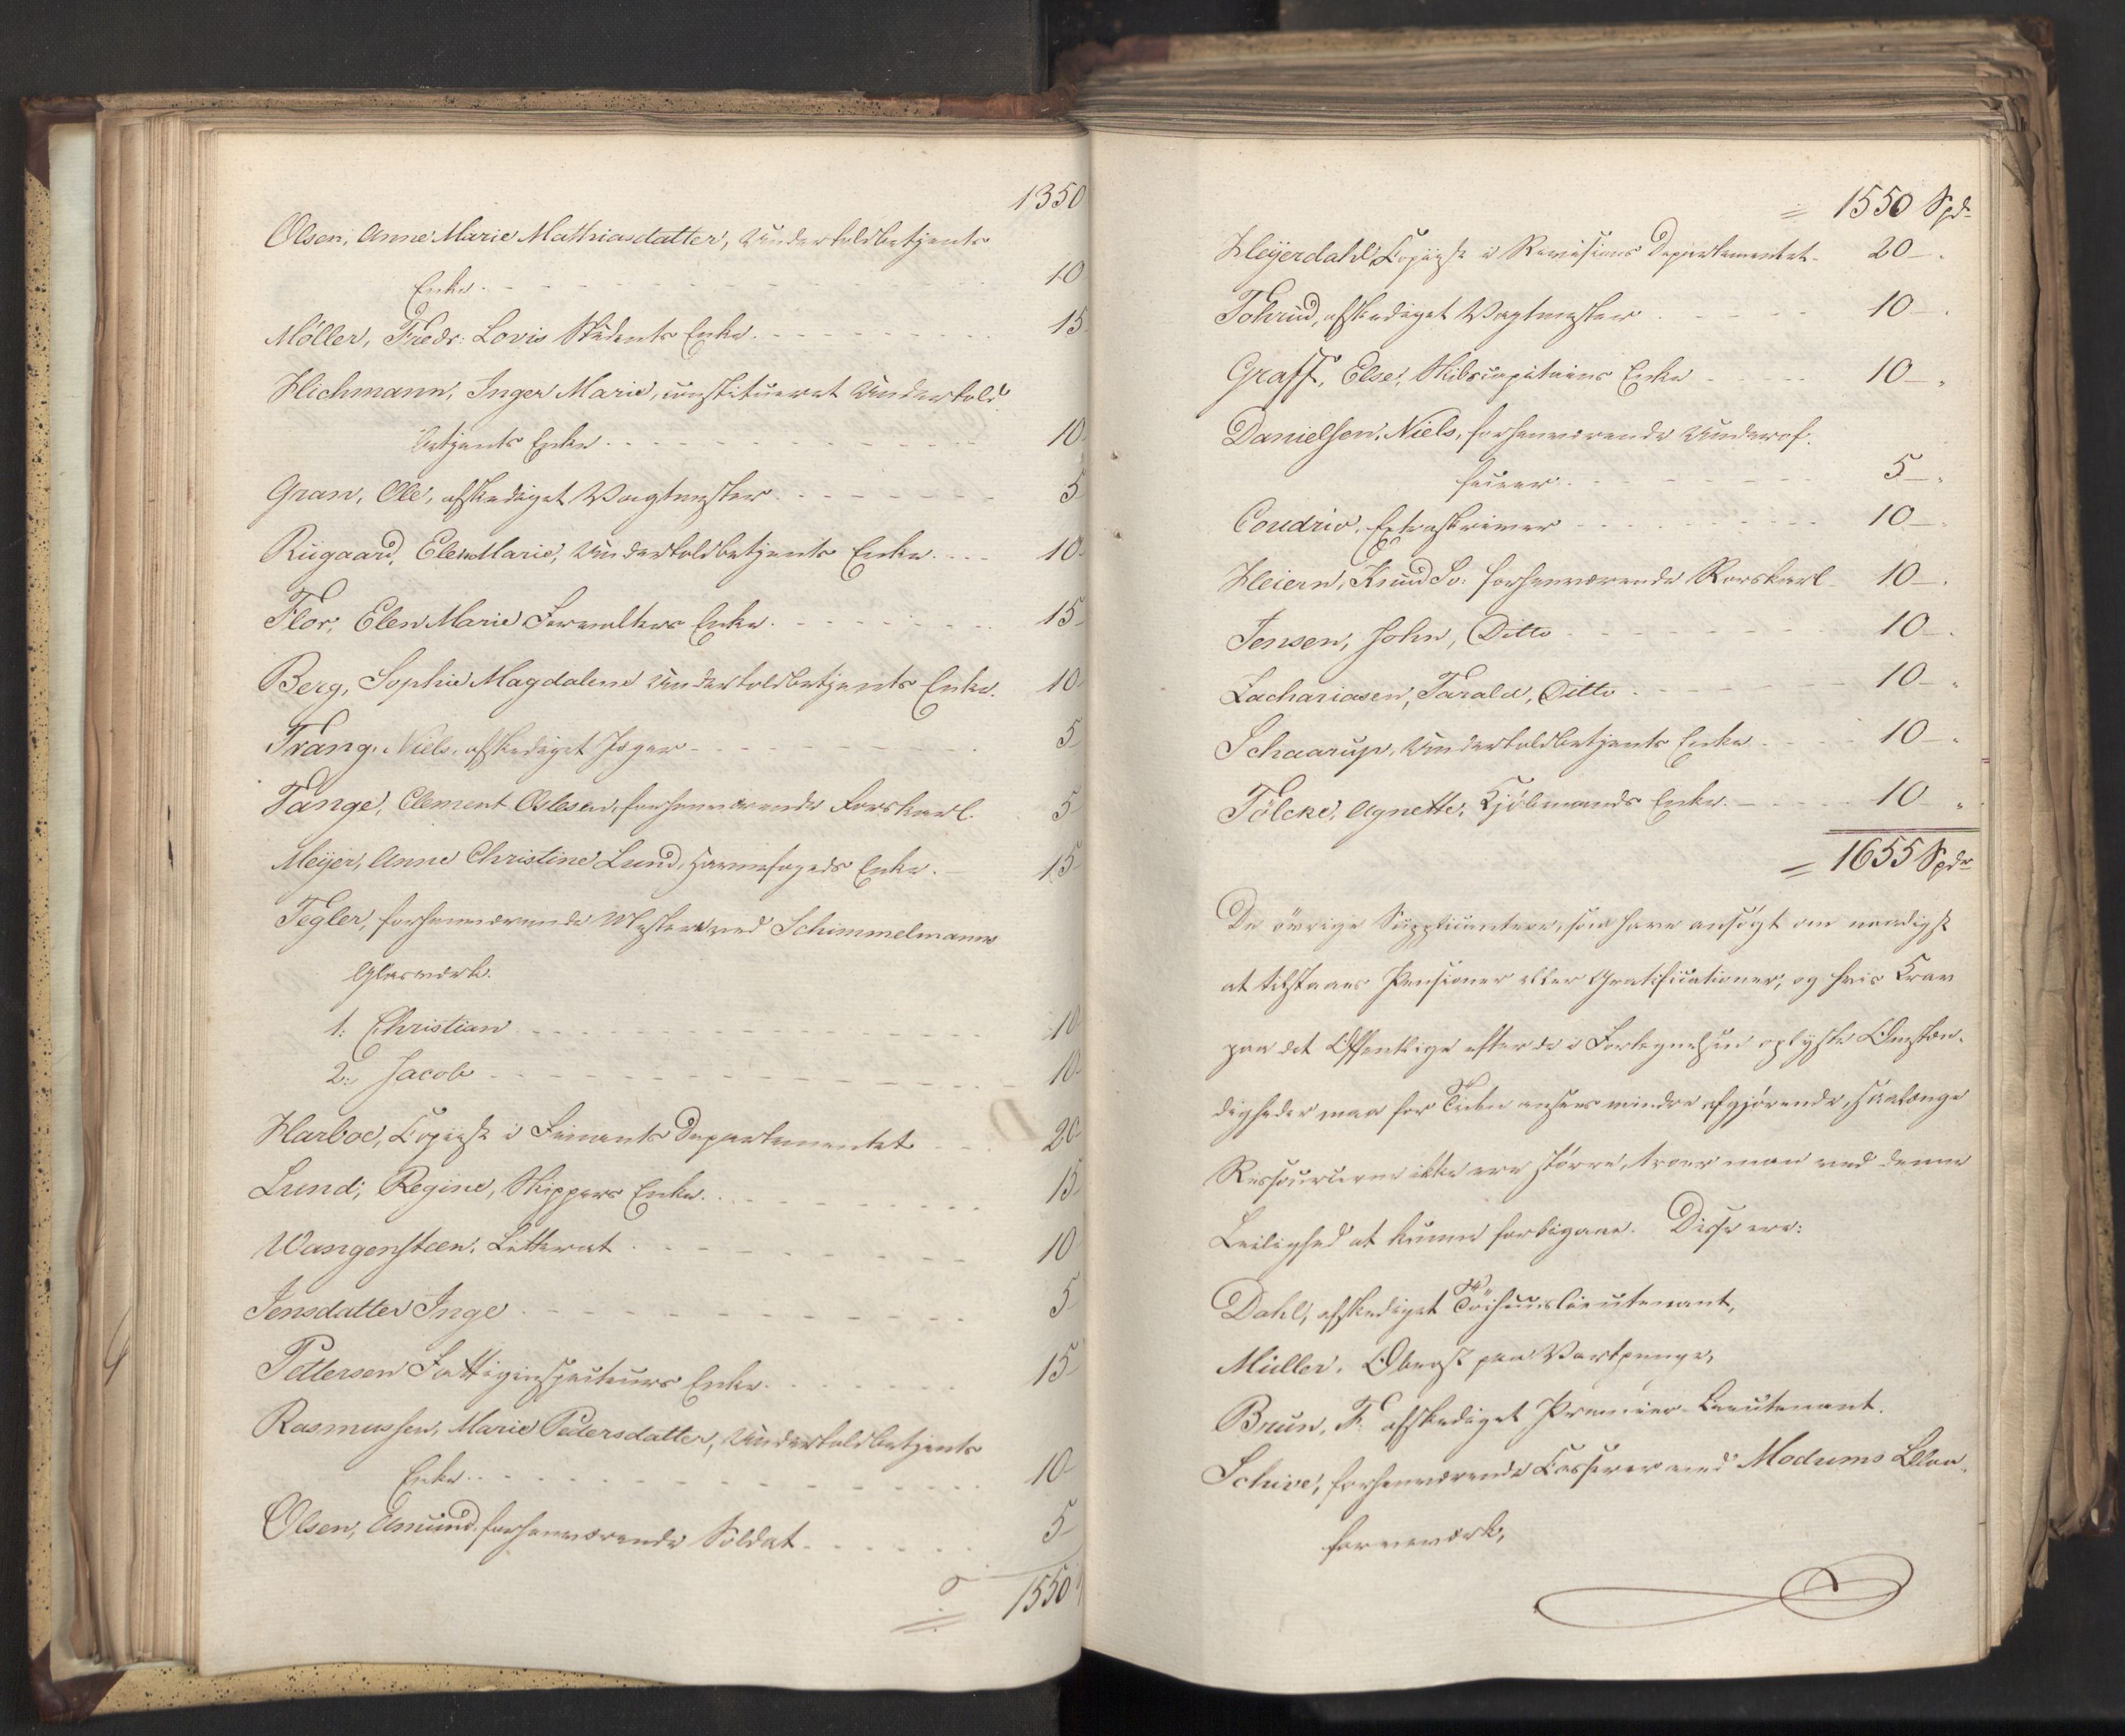 1350
Olsen, Anne Marie Mathiasdatter, Undertoldbetjents
Enke. 10
Möller, Fredr: Lovis Students Enke. 15
Hichmann, Inger Marie, constitueret Undertold
betjents Enke. 10
Gran, Ole, afskediget Vagtmester. 5
Riigaard, Elen Marie, Undertoldbetjents Enke. 10
Flor, Elen Marie Forvalters Enke. 15
Berg, Sophie Magdalene Undertoldbetjents Enke. 10
Trang, Niels, afskediget Jæger 5
Tange, Clement Oslesen, forhenværende Rorskarl. 5
Meijer, Anne Christine Lund, Havnefogeds Enke. 15
Tegler, forhenværende Mester ved Schimmelmanns
Glasværk.
1: Christian 10
2: Jacob 10
Harboe, Copiist i Finants Departementet 20
Lund, Regine, Skippers Enke. 15
Wangensteen, Litterat 10
Jensdatter Inge 5
Pettersen Fattiginspecteurs Enke. 15
Rasmussen, Marie Pedersdatter, Undertoldbetjents
Enke. 10
Olsen, Amund, forhenværende Soldat. 5
= 1550
= 1550 Spd
Heijerdahl, Copiist i Revisions Departementet. 20 -.
Tohrud, afskediget Vagtmester 10 -.
Graff, Else, Skibscapitains Enke 10 -.
Danielsen, Niels, forhenværende Underof-
ficier. 5 -.
Coudrio, Extraskriver 10 -.
Heiern, Knud So: forhenværende Rorskarl 10 -.
Jensen, John, Ditto 10 -.
Zachariasen, Tarald, Ditto. 10 -.
Schaarup, Undertoldbetjents Enke 10 -.
Tölcke, Agnette, Kjöbmands Enke. 10 -.
= 1655 Spdr
De övrige Supplicantere, som have ansögt om naadigst
at tilstaaes Pensioner eller Gratificationer, og hvis Krav
paa det Offentlige efter de i Fortegnelsen oplyste Omstæn-
digheder maa for Tiden ansees mindre afgjörende, saalænge
Ressourcerne ikke ere större, troer man ved denne
Leilighed at kunne forbigaae. Disse ere:
Dahl, afskediget Töihuuslieutenant,
Müller, Oberst paa Vartpenge,
Brun, F. afskediget Premier-Lieutenant.
Schive, forhenværende Casserer ved Modums Blaa-
farveværk,